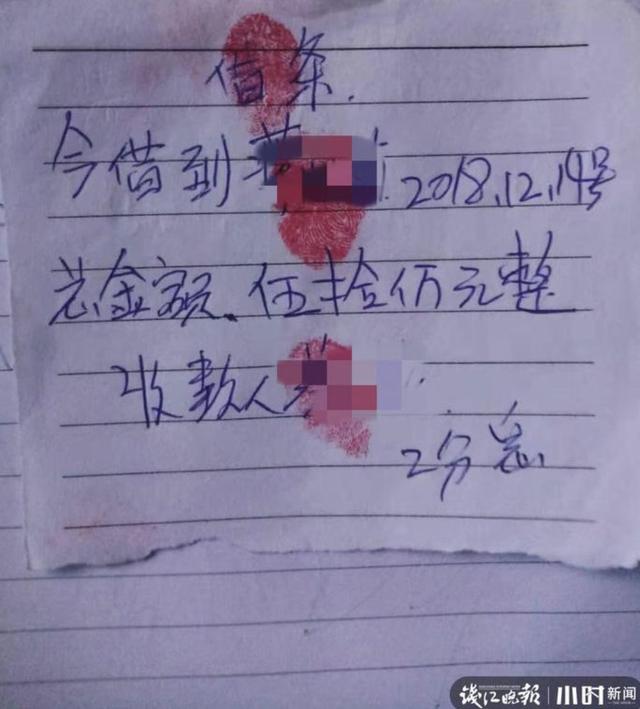 借条.
今借到 2018.12.14号
总金额、伍拾仟元整
收款人
2分息
钱江晚报 小时新闻